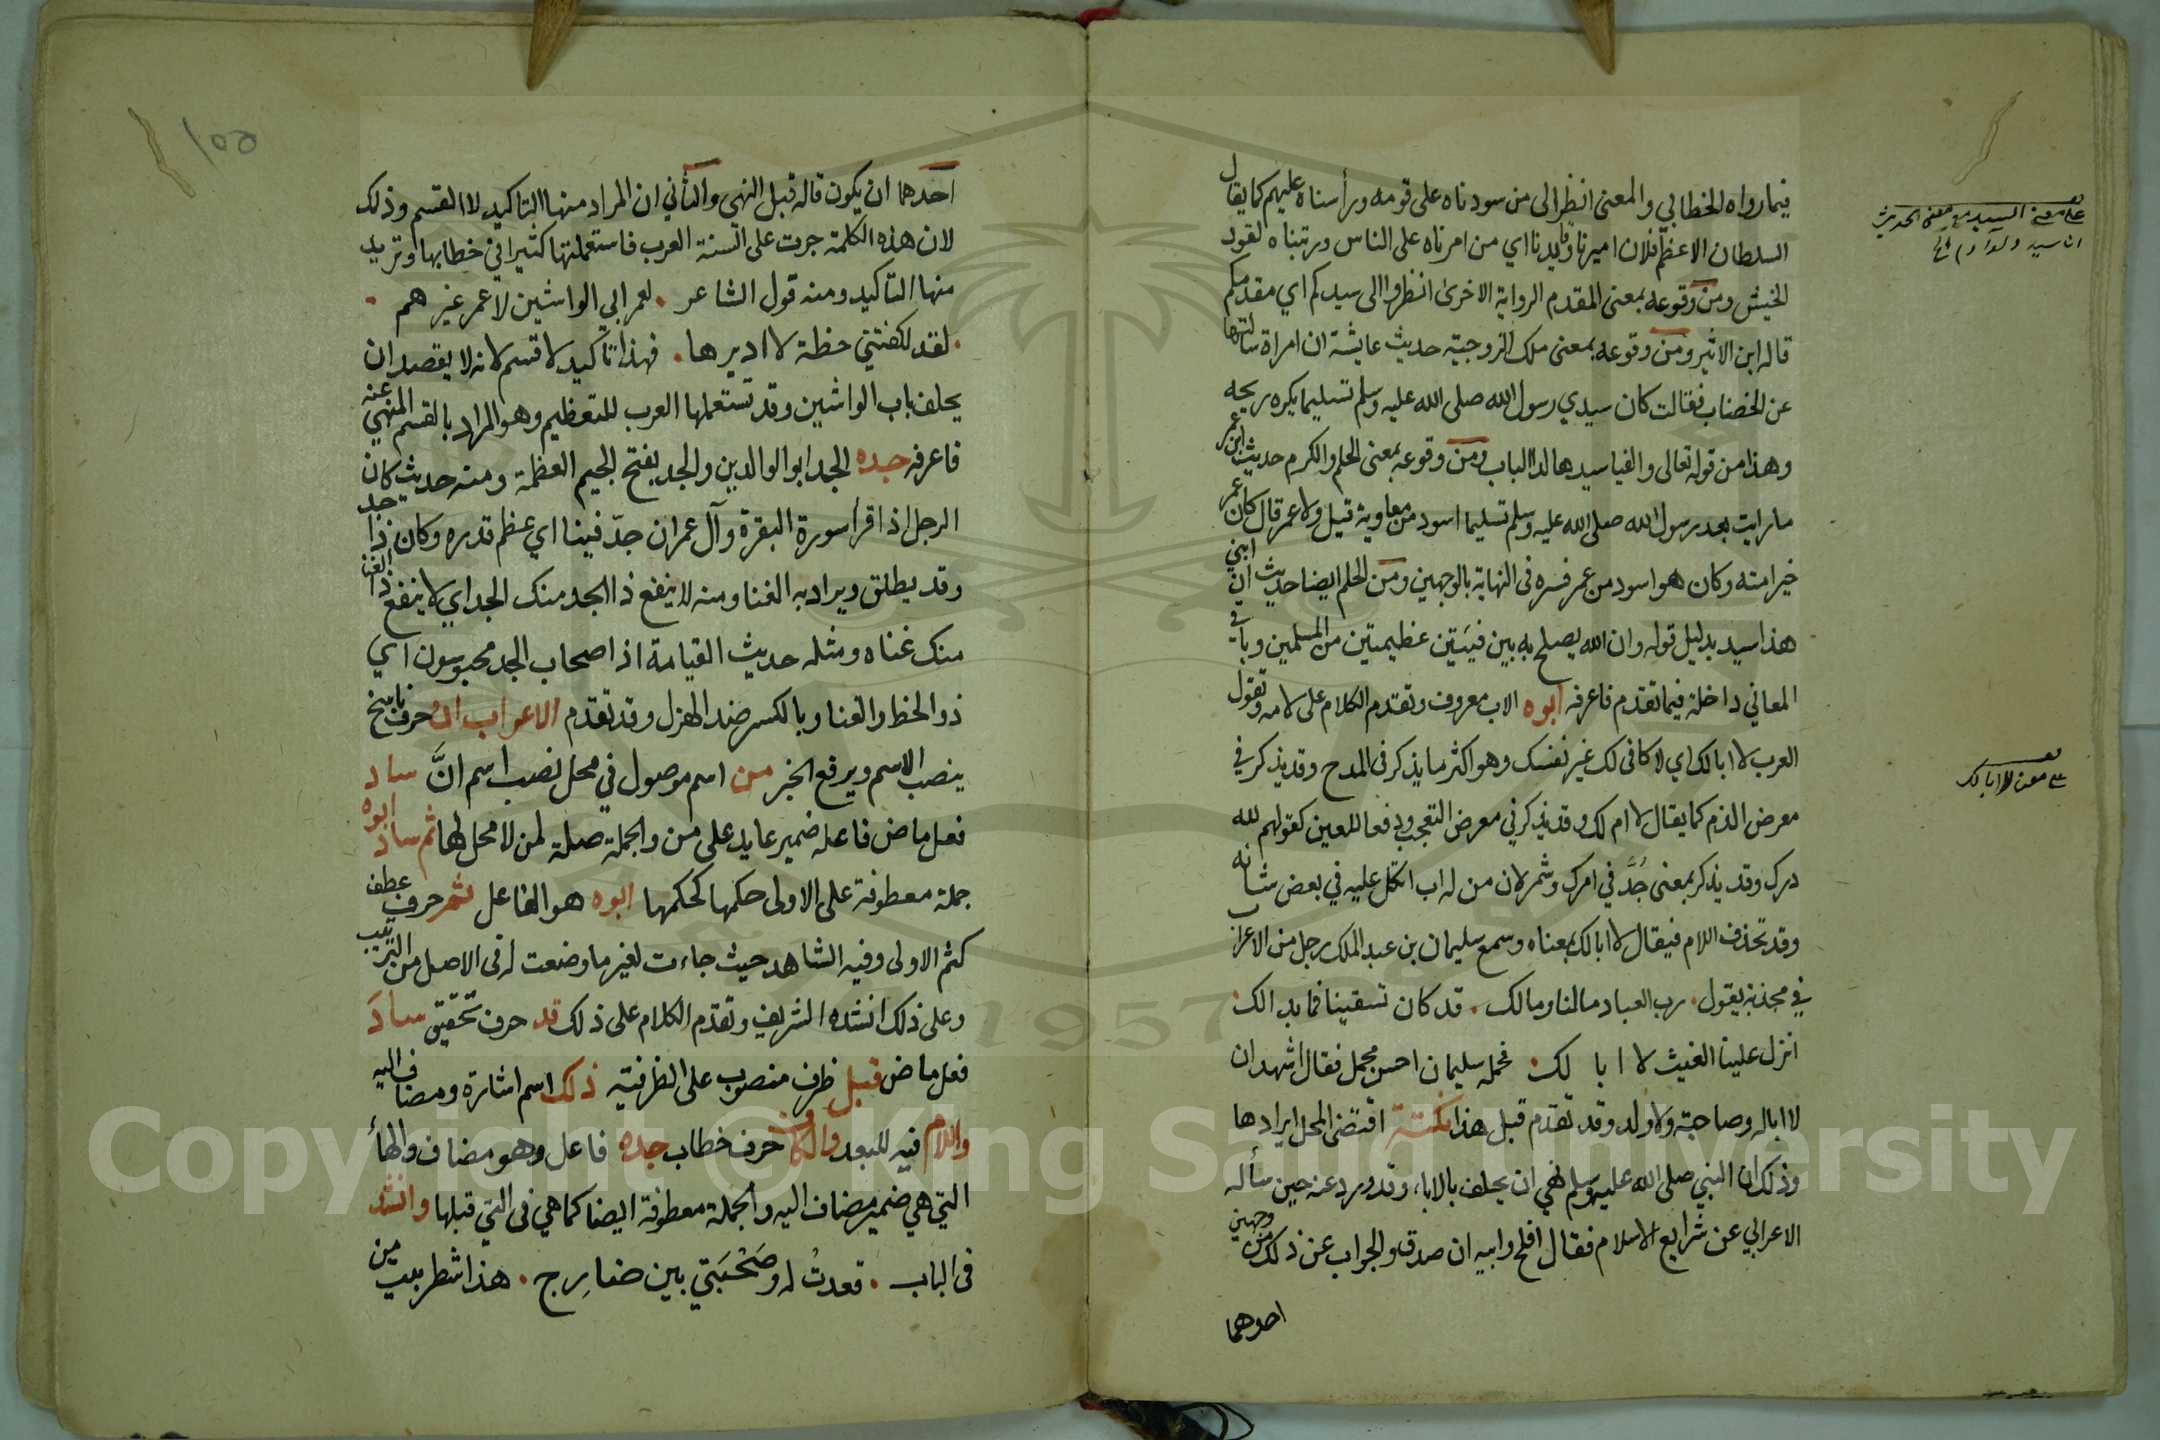 فيما رواه الخطابي والمعنى انظر الى من سودناه على قومه ورأسناه عليهم كما يقال
السلطان الاعظم فلان اميرنا وقايدنا اي من امرناه على الناس ورتبناه لقود
الجيش ومن وقوعه بمعنى المقدم الرواية الاخرى انظروا الى سيدكم اي مقدمكم
قاله ابن الاثير ومن وقوعه بمعنى ملك الزوجية حديث عايشة ان امراة سالتها
عن الخضاب فقالت كان سيدي رسول الله صلى الله عليه وسلم تسليما يكره ريحه
وهذا من قوله تعالى والفيا سيدها لدا الباب ومن وقوعه بمعنى الحلم والكرم حديث ابن عمر
ما رايت بعد رسول الله صلى الله عليه وسلم تسليما اسود من معاوية قيل ولا عمر قال كان عمر
خيرا منه وكان هو اسود من عمر فسره في النهاية بالوجهين ومن الحلم ايضا حديث ان ابني
هذا سيد بدليل قوله وان الله يصلح به بين فيتين عظيمتين من المسلمين وباقي
المعاني داخلة فيما تقدم فاعرفه ابوه الاب معروف وتقدم الكلام على لامه وتقول
العرب لا ابا لك اي لا كافى لك غير نفسك وهو اكثر ما يذكر في المدح وقد يذكر في
معرض الذم كما يقال لا ام لك وقد يذكر في معرض التعجب ودفعا للعين كقولهم لله
درك وقد يذكر بمعنى جُدَّ في امرك وشمر لان من له اب اتكل عليه في بعض شانه
وقد تحذف اللام فيقال لا اباك بمعناه وسمع سليمان بن عبد الملك رجل من الاعراب
في مجذبة يقول . رب العباد ما لنا وما لك . قد كان تسقينا فما بدا لك .
انزل علينا الغيث لا ابا لك . فحمله سليمان احسن مجمل فقال اشهد ان
لا ابا له وصاحبة ولا ولد وقد تقدم قبل هذا نكتة اقتضى المحل ايرادها
وذلك ان النبي صلى الله عليه وسلم نهى ان يحلف بالابا، وقد ورد عنه حين سأله
الاعرابي عن شرايع الاسلام فقال افلح وابيه ان صدق والجواب عن ذلك من وجهين
احدهما
على معنى السيد من معنى الحديث
معنى لا ابا لك
احدهما ان يكون قاله قبل النهي والثاني ان المراد منها التاكيد لا القسم وذلك
لان هذه الكلمة جرت على السنة العرب فاستعملتها كثيرا في خطابها وتريد
منها التاكيد ومنه قول الشاعر . لعمر ابي الواشين لا عمر غيرهم .
. لقد كلفتني خطة لا اديرها . فهذا تاكيد لا قسم لانه لا يقصد ان
يحلف باب الواشين وقد تستعملها العرب للتعظيم وهو المراد بالقسم المنهي عنه
فاعرفه جده الجد ابو الوالدين والجد بفتح الجيم العظمة ومنه حديث كان
الرجل اذا قرأ سورة البقرة وآل عمران جدّ فينا اي عظم قدره وكان ذا جد
وقد يطلق ويراد به الغنا ومنه لا ينفع ذا الجد منك الجد اي لا ينفع ذا الغنا
منك غناه ومثله حديث القيامة اذا اصحاب الجد محبوسون اي
ذو الحظ والغنا وبالكسر ضد الهزل وقد تقدم الاعراب ان حرف ناسخ
ينصب الاسم ويرفع الخبر من اسم موصول في محل نصب اسم انَّ ساد
فعل ماض فاعله ضمير عايد على من والجملة صلة لمن لا محل لها ثم ساد ابوه
جملة معطوفة على الاولى حكمها كحكمها ابوه هو الفاعل ثم حرف عطف
كثم الاولى وفيه الشاهد حيث جاءت لغير ما وضعت له في الاصل من الترتيب
وعلى ذلك انشده الشريف وتقدم الكلام على ذلك قد حرف تحقيق سادَ
فعل ماض قبل ظرف منصوب على الظرفية ذلك اسم اشارة ومضاف اليه
واللام فيه للبعد والكاف حرف خطاب جده فاعل وهو مضاف والهأ
التي هي ضمير مضاف اليه والجملة معطوفة ايضا كما هي في التي قبلها وانشد
في الباب . قعدتُ له وصُحْبَتي بين ضارِج . هذا شطر بيت من